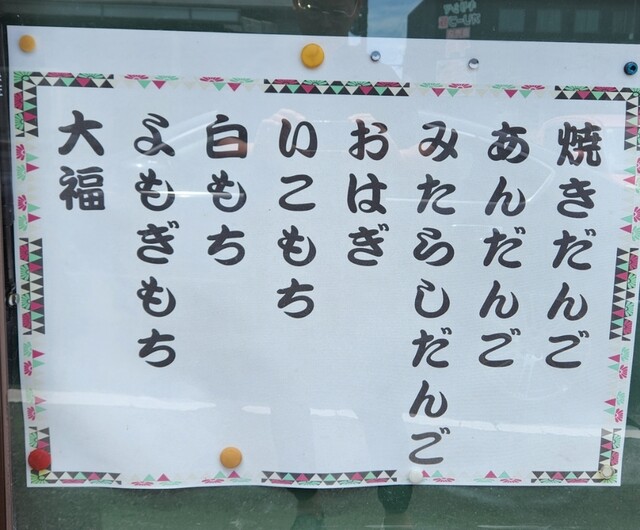 焼きだんご
あんだんご
みたらしだんご
おはぎ
いこもち
白もち
よもぎもち
大福